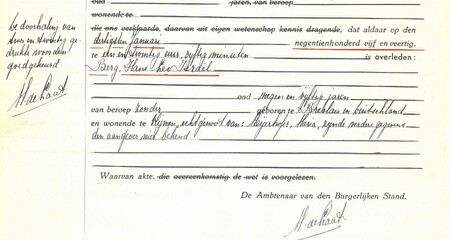 De doorhaling van
een en twintig ge-
drukte woorden
goedgekeurd
MdeRaat
oud jaren, van beroep
wonende te
die ons verklaarde, daarvan uit eigen wetenschap kennis dragende, dat aldaar op den
dertigsten Januari negentienhonderd vijf en veertig,
te een en twintig uur, vijftig minuten is overleden:
Berg, Hans Leo Israel
oud negen en vijftig jaren
van beroep zonder geboren te Breslau in Duitschland
en wonende te Vlijmen, echtgenoot van: Maria, zijnde verdere gegevens
den aangever niet bekend
Waarvan akte, die overeenkomstig de wet is voorgelezen.
De Ambtenaar van den Burgerlijken Stand,
MdeRaat